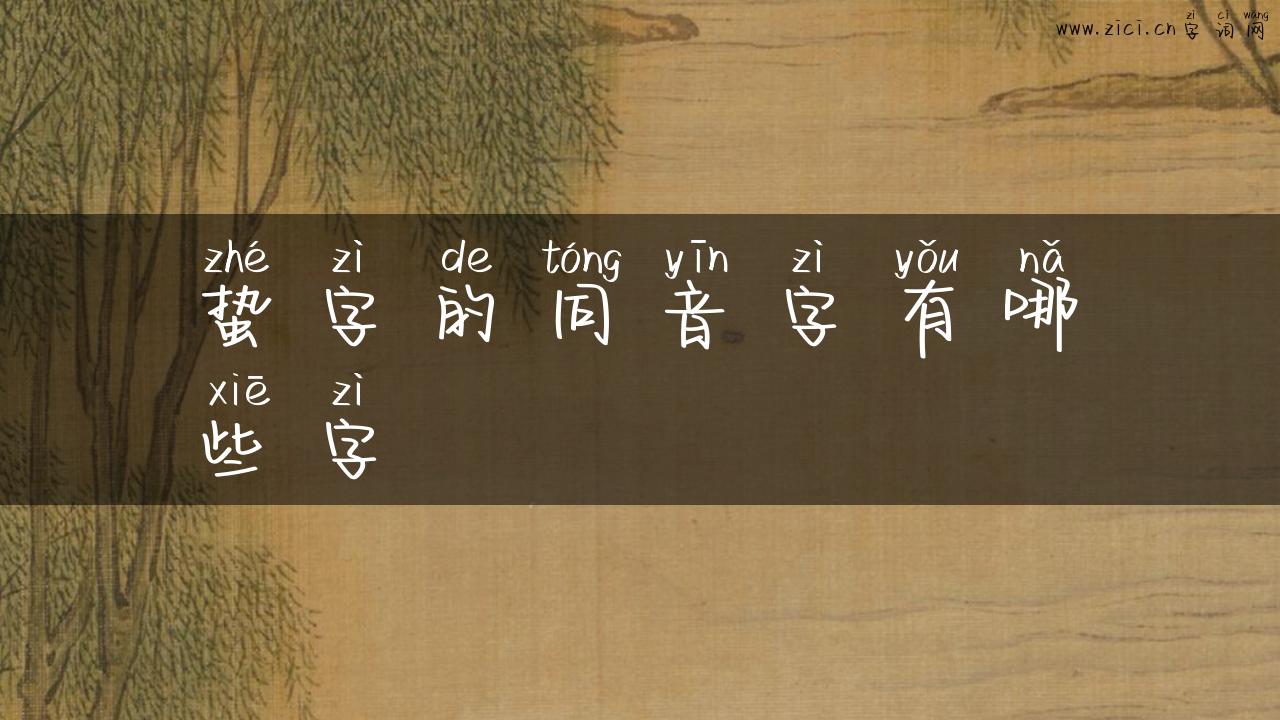 zì cí wǎng
www.zici.cn 字词网
zhé zì de tóng yīn zì yǒu nǎ
蛰字的同音字有哪
xiē zì
些字